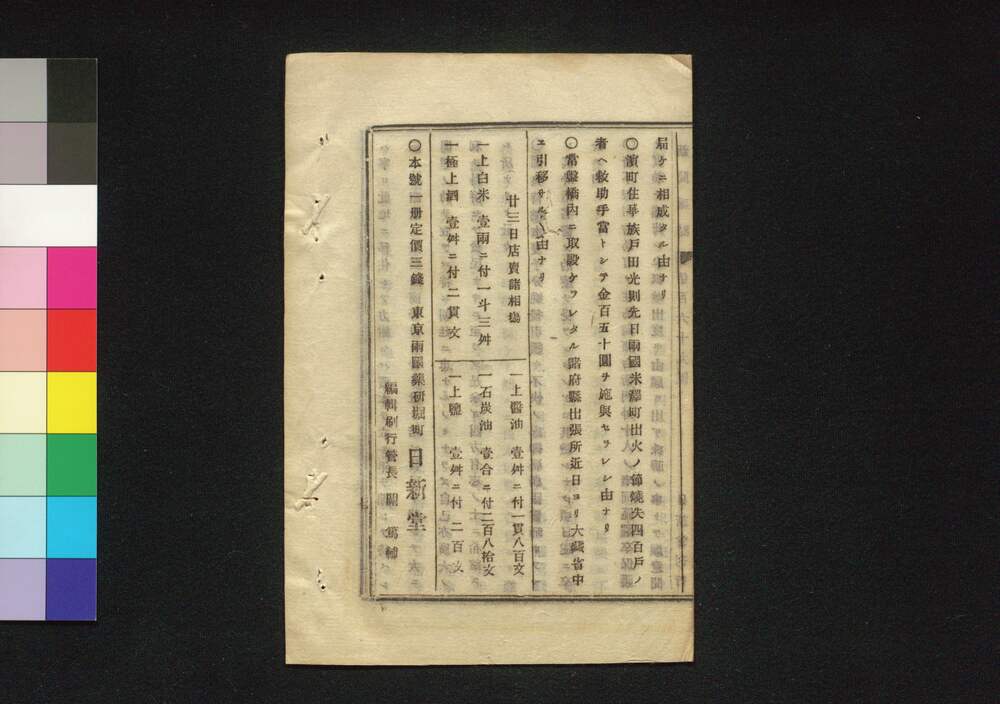 届ケニ相成タル由ナリ
〇濱町住華族戸田光則先日兩國米澤町出火ノ節燒失四百戸ノ
者ヘ救助手當トシテ金百五十圓ヲ施與セラレシ由ナリ
〇常盤橋内ニ取設ケラレタル諸府縣出張所近日ヨリ大藏省中
ニ引移サルヽ由ナリ
廿三日店賣諸相塲
一上白米 壹兩ニ付一斗三舛
一極上酒 壹舛ニ付二貫文
一上醤油 壹舛ニ付一貫八百文
一石炭油 壹合ニ付二百八拾文
一上鹽 壹舛ニ付 二百文
〇本號一册定價三錢 東京兩國藥研堀町 日新堂
編輯刷行管長 關 篤輔